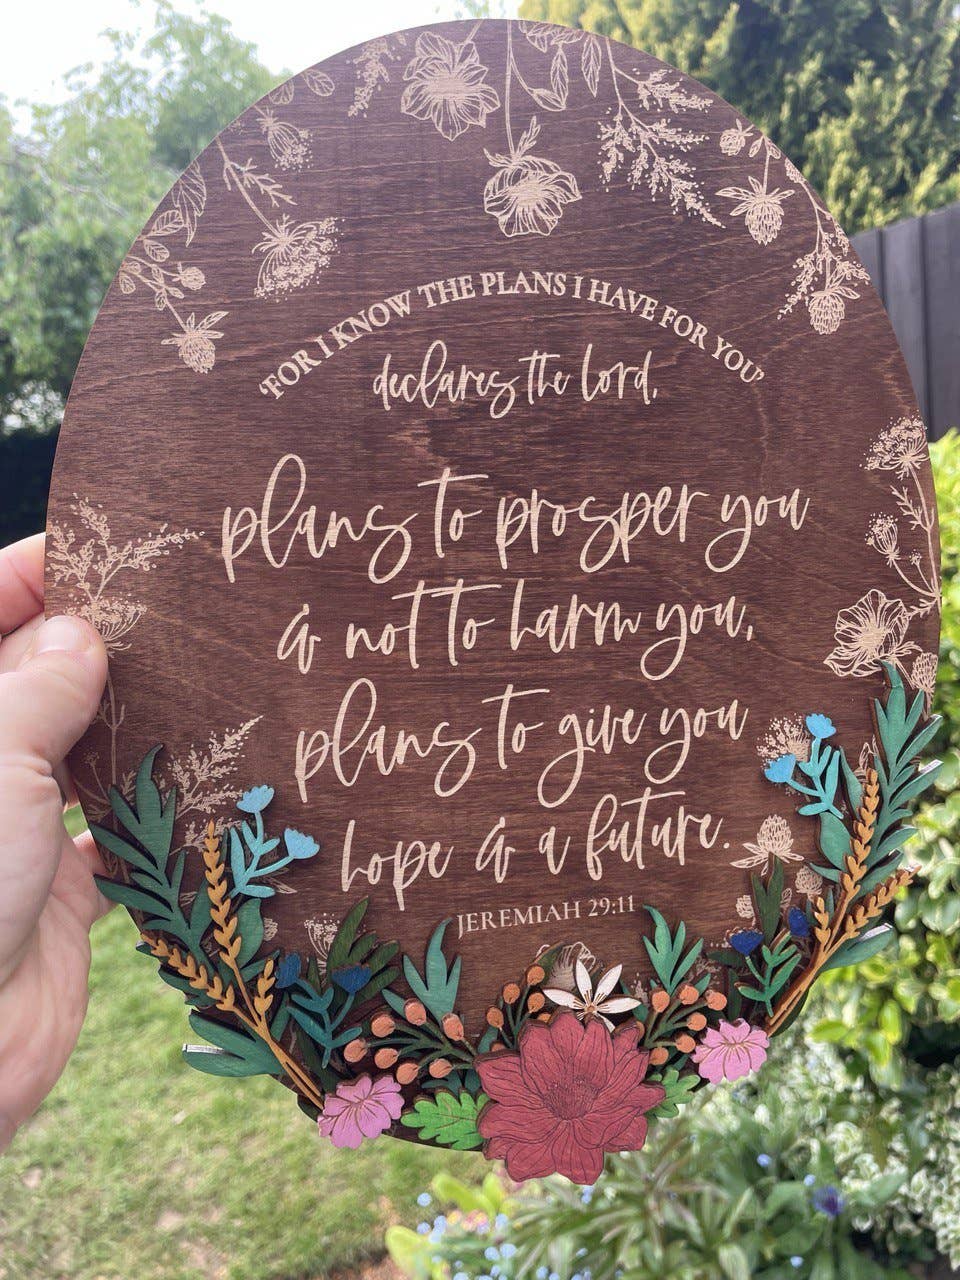 'FOR I KNOW THE PLANS I HAVE FOR YOU'
declares the Lord,
plans to prosper you
& not to harm you,
plans to give you
hope & a future.
JEREMIAH 29:11